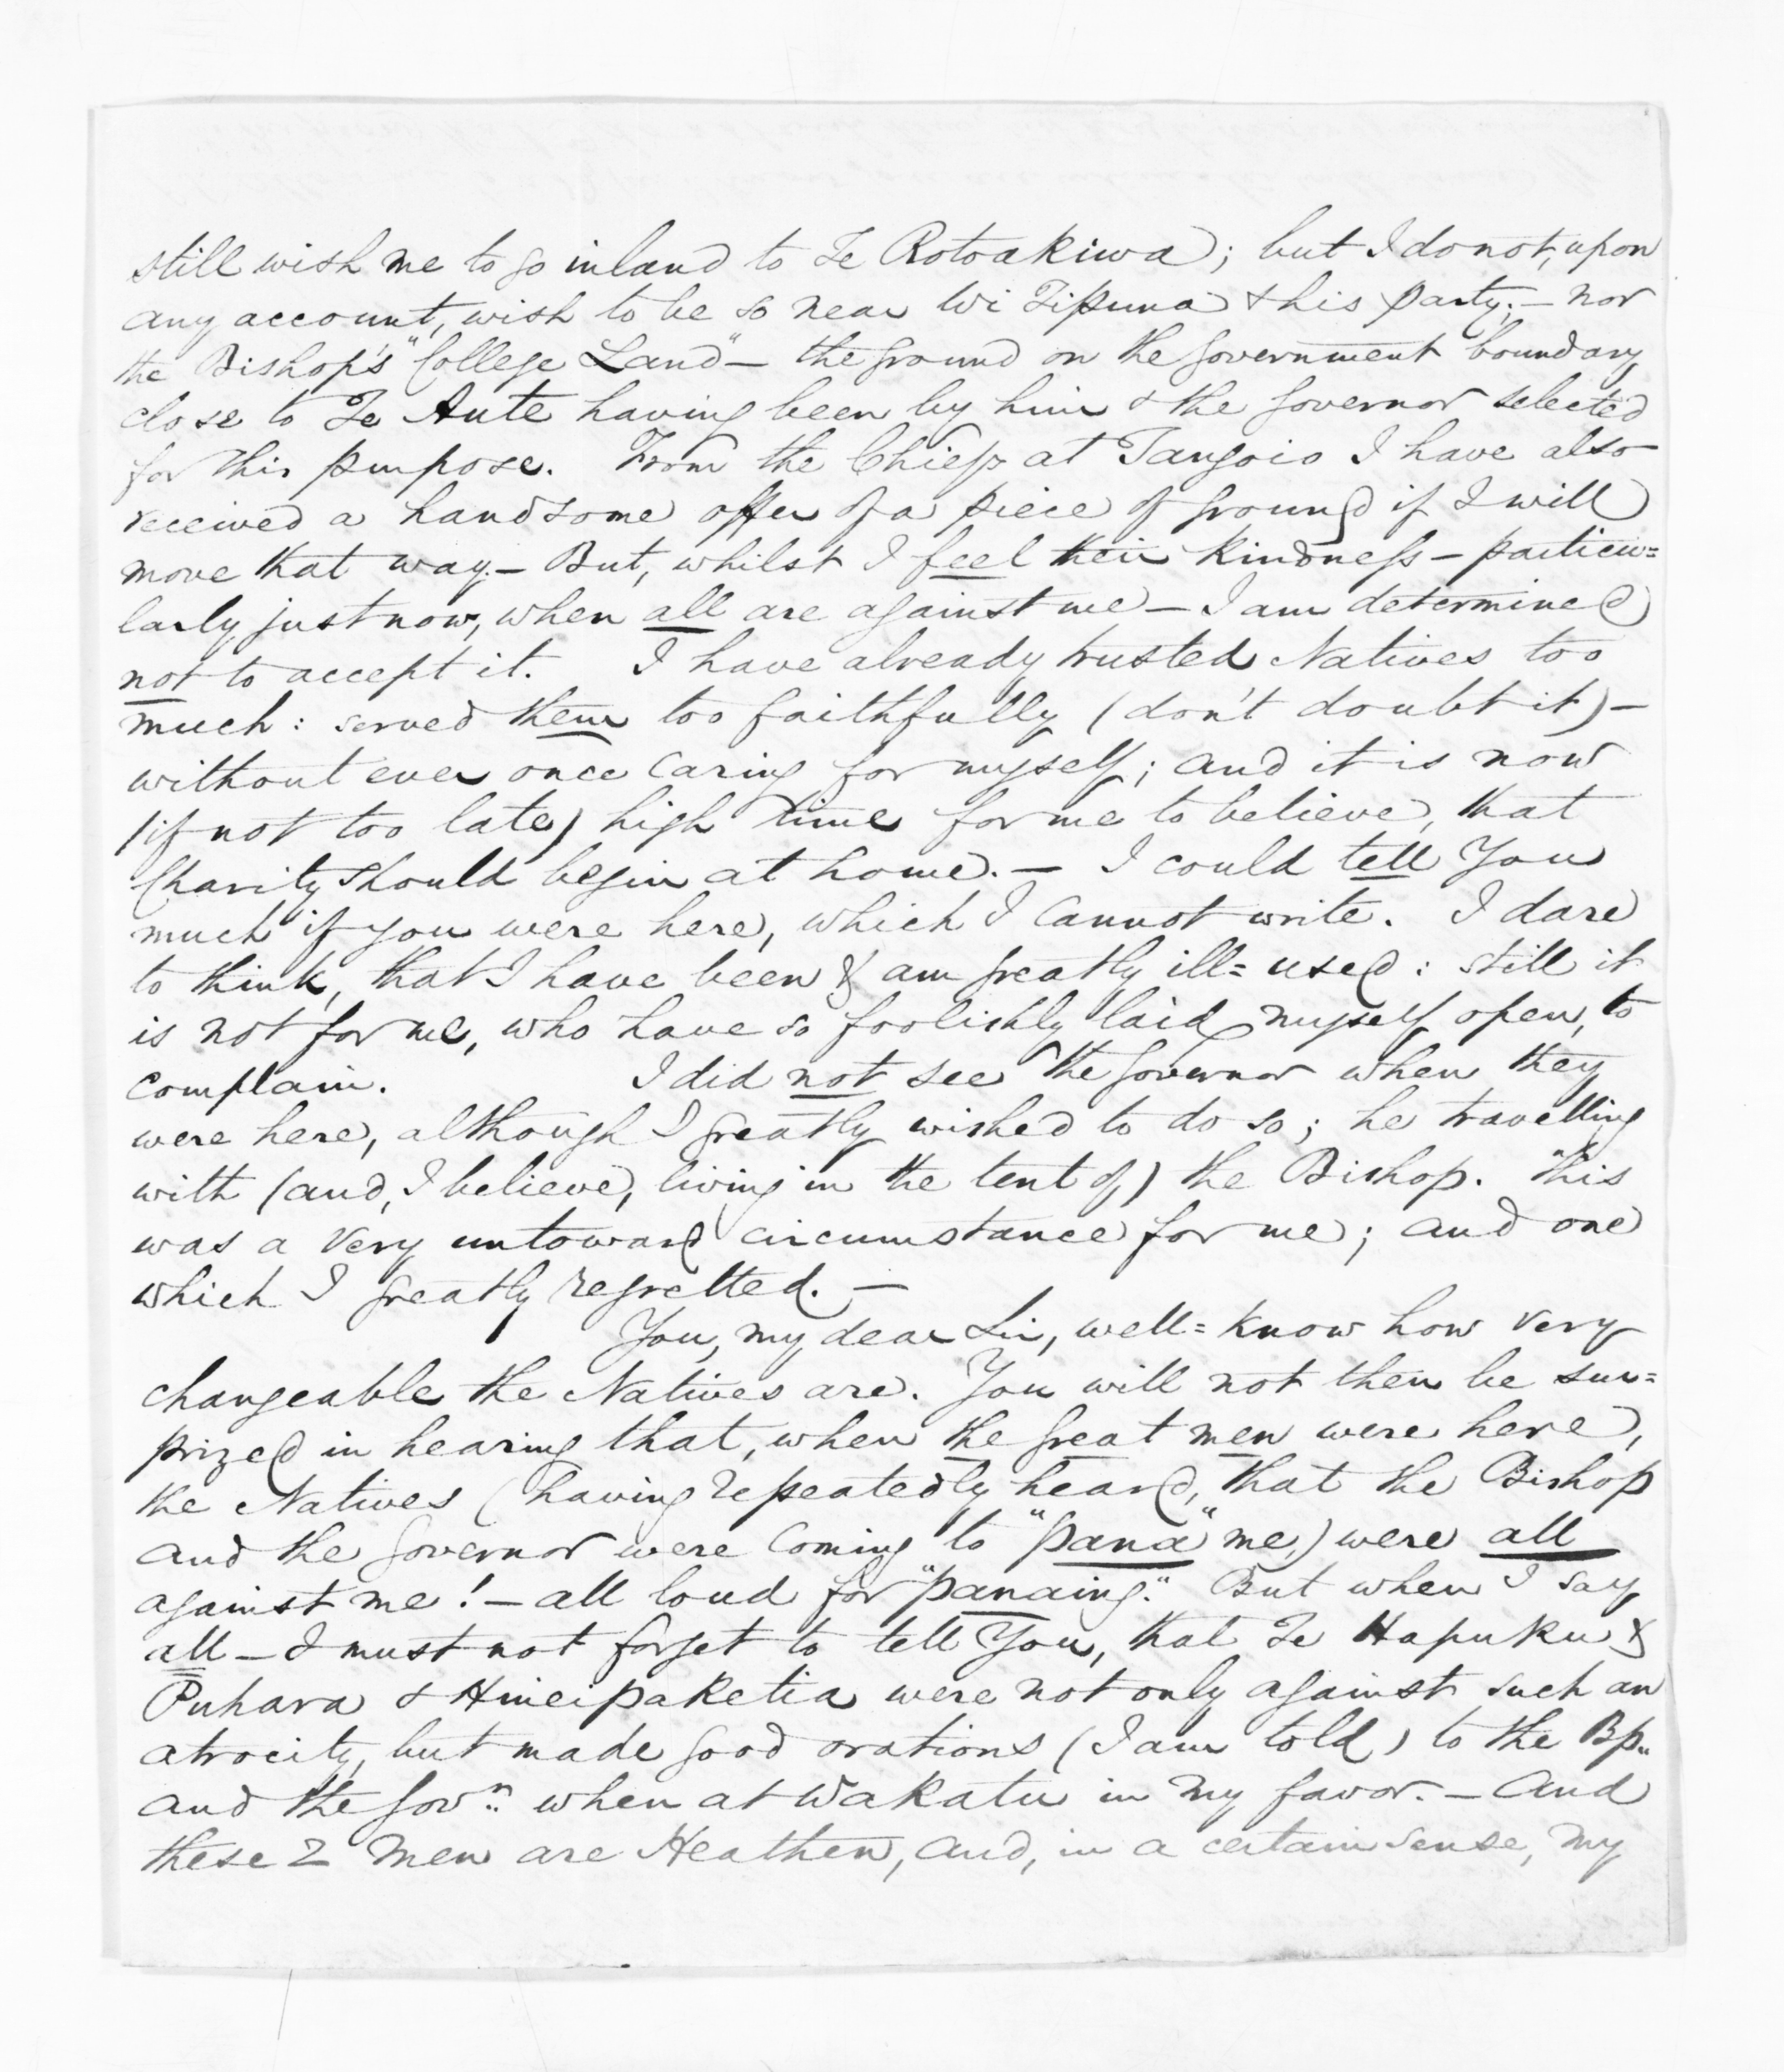 still wish me to go inland to Te Rotoakiwa; but I do not, upon
any account, wish to be so near Wi Tipuna & his party; – nor
the Bishop's "College Land" – the ground on the Government boundary
close to Te Aute having been by him & the Governor selected
for this purpose. From the Chiefs at Tangoio I have also
received a handsome offer of a piece of ground if I will
move that way. – But, whilst I feel their kindness – particu=
larly just now, when all are against me – I am determined
not to accept it. I have already trusted Natives too
much: served them too faithfully (don't doubt it) –
without ever once caring for myself; and it is now
(if not too late) high time for me to believe, that
Charity should begin at home. – I could tell You
much if you were here, which I cannot write. I dare
to think, that I have been & am greatly ill=used: still it
is not for me, who have so foolishly laid myself open, to
complain. I did not see the Governor when they
were here, although I greatly wished to do so; he travelling
with (and, I believe, living in the tent of,) the Bishop. This
was a very untoward circumstance for me; and one
which I greatly regretted. –
You, my dear Sir, well=know how very
changeable the Natives are. You will not then be sur=
prized in hearing that, when the great men were here,
the Natives (having repeatedly heard, that the Bishop
and the Governor were coming to "pana" me,) were all
against me! – all loud for "panaing." But when I say
all – I must not forget to tell You, that Te Hapuku &
Puhara & Hineipaketia were not only against such an
atrocity, but made good orations (I am told) to the Bp.
and the Govr. when at Wakatu in my favor. – And
these 2 Men are Heathen, and, in a certain sense, my